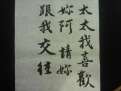 太太我喜歡
妳阿請妳
跟我交往